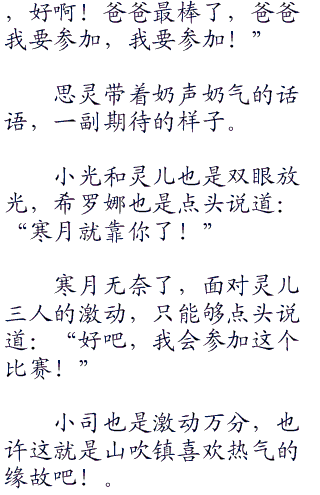 ，好啊！爸爸最棒了，爸爸
我要参加，我要参加！”
思灵带着奶声奶气的话
语，一副期待的样子。
小光和灵儿也是双眼放
光，希罗娜也是点头说道：
“寒月就靠你了！”
寒月无奈了，面对灵儿
三人的激动，只能够点头说
道：“好吧，我会参加这个
比赛！”
小司也是激动万分，也
许这就是山吹镇喜欢热气的
缘故吧！。